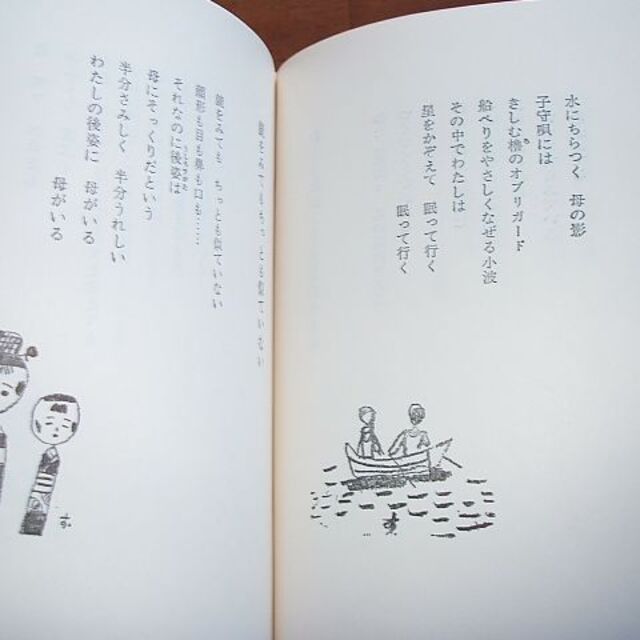 水にちらつく 母の影
子守唄には
きしむ櫓のオブリガード
船べりをやさしくなぜる小波
その中でわたしは
星をかぞえて 眠って行く
眠って行く
鏡をみてもちっとも似ていない
鏡をみても ちっとも似ていない
顔形も目も鼻も口も……
それなのに後姿は
母にそっくりだという
半分さみしく 半分うれしい
わたしの後姿に 母がいる
母がいる